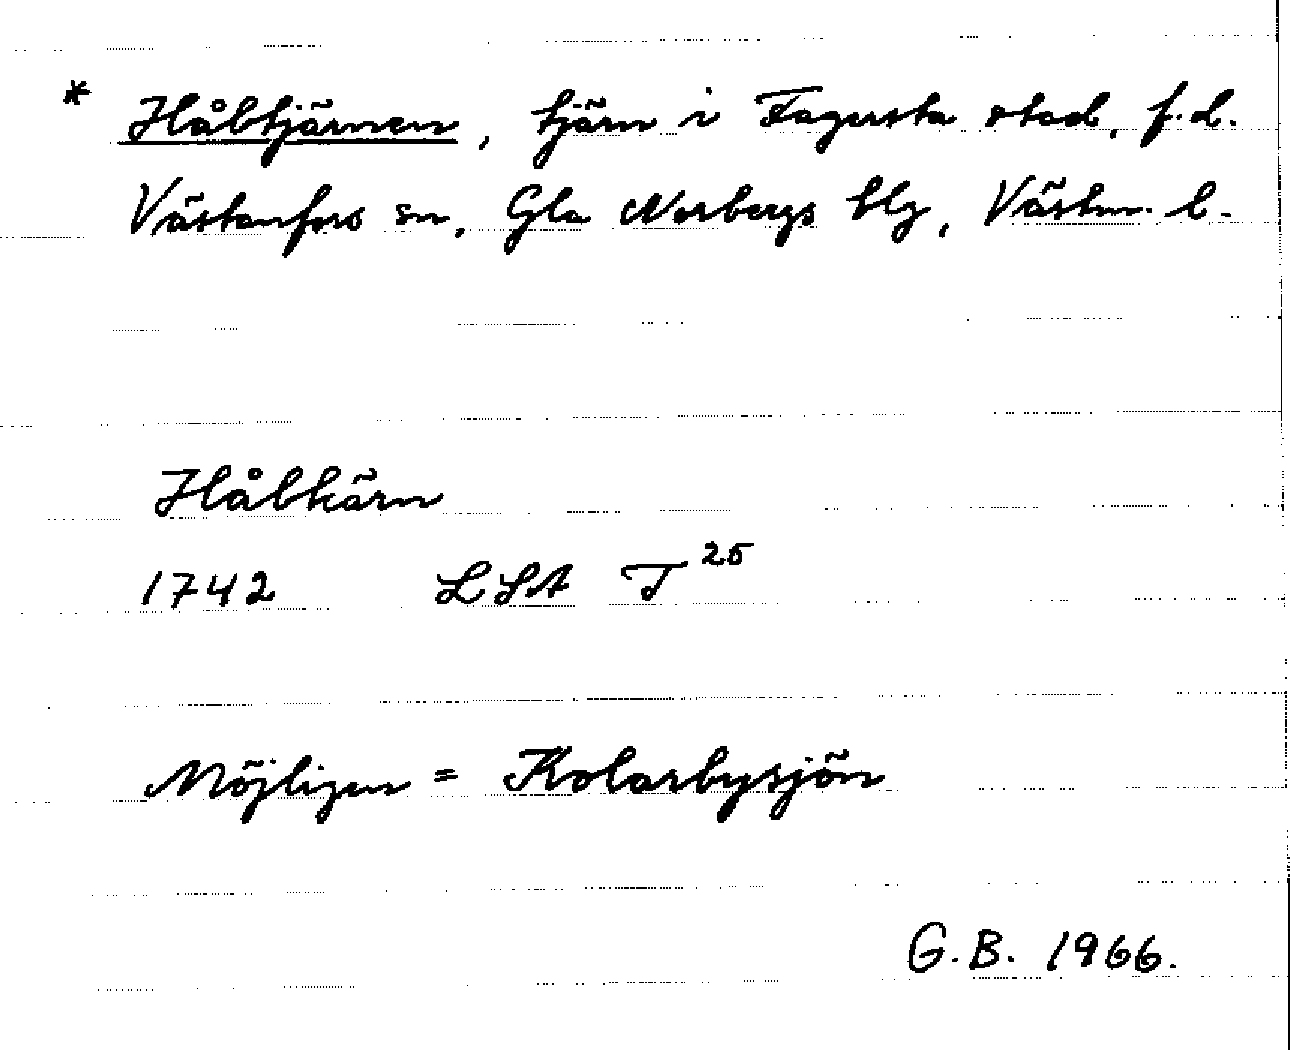 * Håbtjärnen, tjärn i Fagersta stad, f.d.
Västanfors sn, Gla Norbergs blg, Västm. l.
Håbkärn
1742 LSA T²⁵
Möjligen = Kolarbysjön
G.B. 1966.